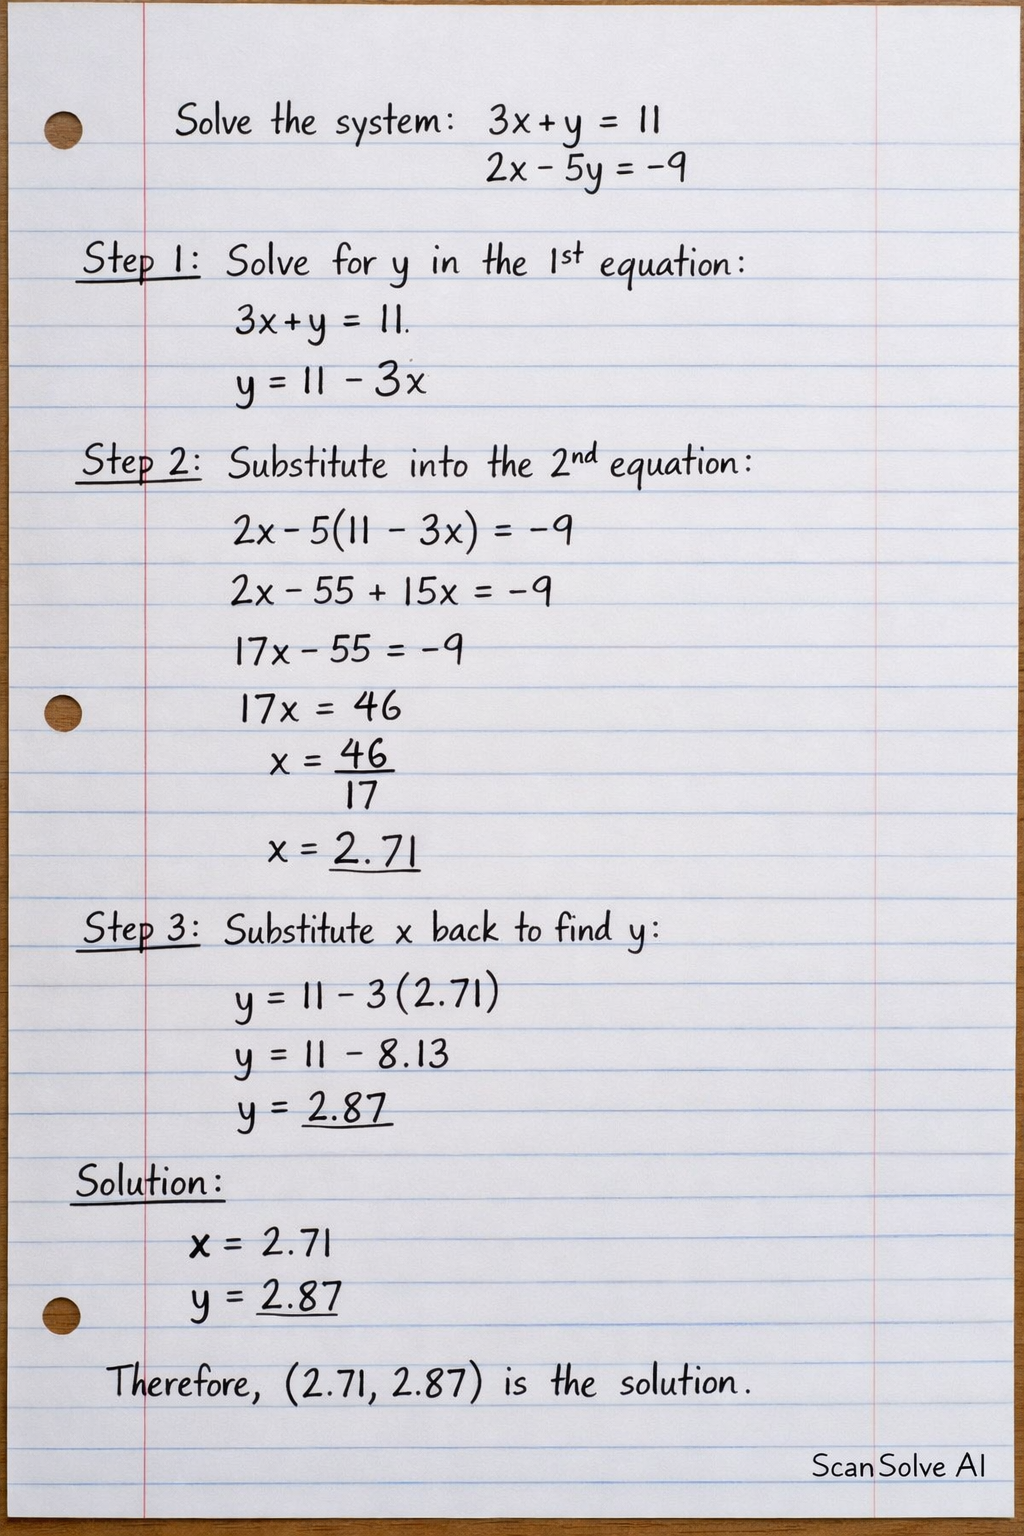 Solve the system: 3x + y = 11
2x - 5y = -9
Step 1: Solve for y in the 1st equation:
3x + y = 11.
y = 11 - 3x
Step 2: Substitute into the 2nd equation:
2x - 5(11 - 3x) = -9
2x - 55 + 15x = -9
17x - 55 = -9
17x = 46
x = 46/17
x = 2.71
Step 3: Substitute x back to find y:
y = 11 - 3(2.71)
y = 11 - 8.13
y = 2.87
Solution:
x = 2.71
y = 2.87
Therefore, (2.71, 2.87) is the solution.
ScanSolve AI